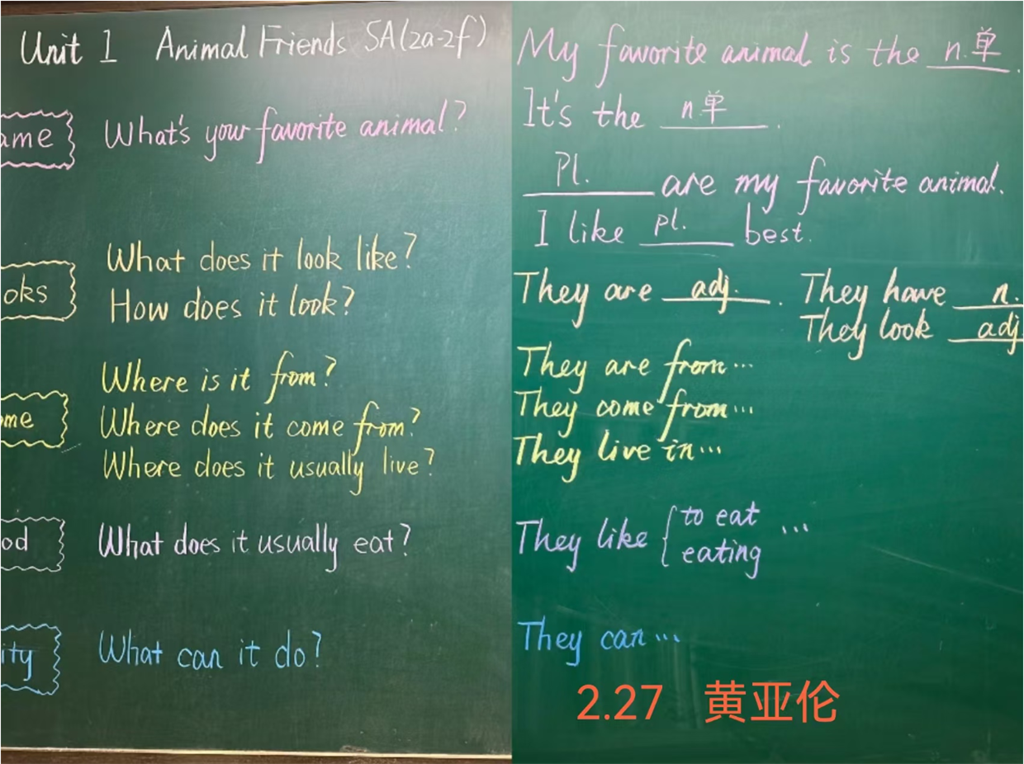 Unit 1 Animal Friends SA(2a-2f)
ame What's your favorite animal?
oks What does it look like?
How does it look?
me Where is it from?
Where does it come from?
Where does it usually live?
od What does it usually eat?
ity What can it do?
My favorite animal is the n.单.
It's the n.单.
Pl. are my favorite animal.
I like pl. best.
They are adj. They have n.
They look adj
They are from...
They come from...
They live in...
They like { to eat ...
eating
They can...
2.27 黄亚伦